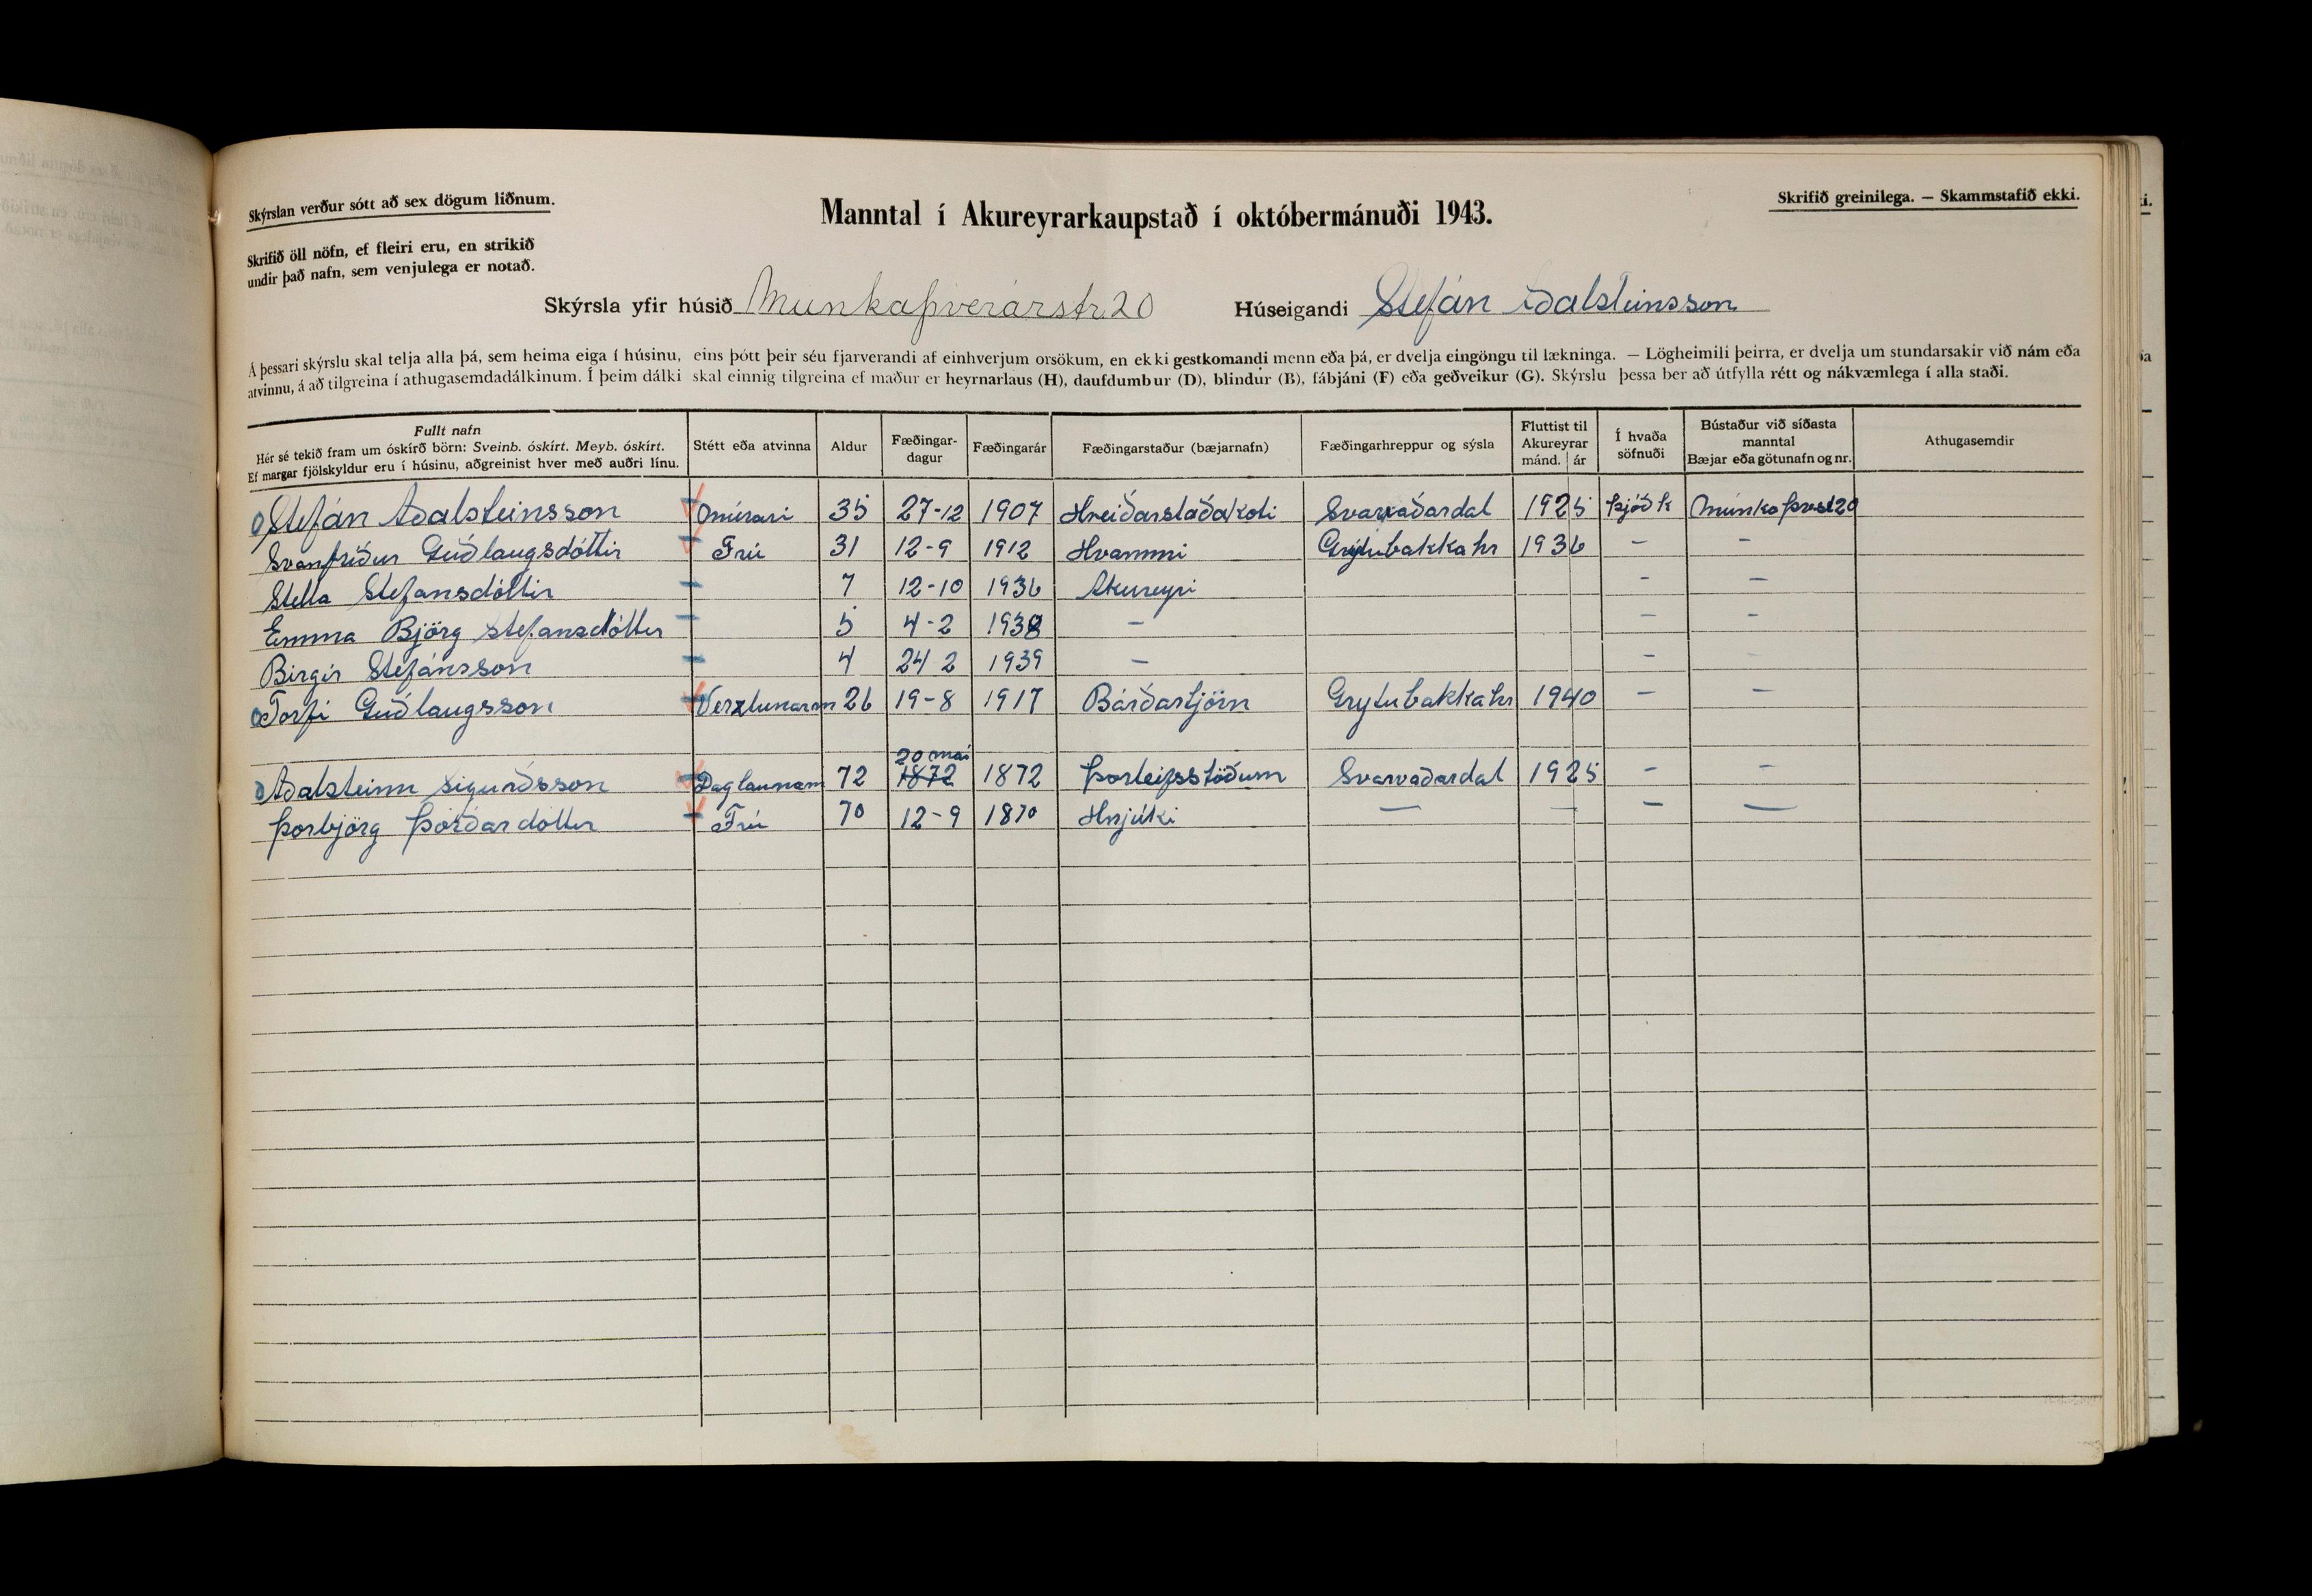 Skýrslan verður sótt að sex dögum liðnum.
Manntal í Akureyrarkaupstað í októbermánuði 1943.
Skrifið greinilega. — Skammstafið ekki.
Skrifið öll nöfn, ef fleiri eru, en strikið
undir það nafn, sem venjulega er notað.
Skýrsla yfir húsið Munkaþverárstr. 20 Húseigandi Stefán Aðalsteinsson
Á þessari skýrslu skal telja alla þá, sem heima eiga í húsinu, eins þótt þeir séu fjarverandi af einhverjum orsökum, en ekki gestkomandi menn eða þá, er dvelja eingöngu til lækninga. — Lögheimili þeirra, er dvelja um stundarsakir við nám eða
atvinnu, á að tilgreina í athugasemdadálkinum. Í þeim dálki skal einnig tilgreina ef maður er heyrnarlaus (H), daufdumbur (D), blindur (B), fábjáni (F) eða geðveikur (G). Skýrslu þessa ber að útfylla rétt og nákvæmlega í alla staði.
Fullt nafn
Hér sé tekið fram um óskírð börn: Sveinb. óskírt. Meyb. óskírt.
Ef margar fjölskyldur eru í húsinu, aðgreinist hver með auðri línu.
Stétt eða atvinna
Aldur
Fæðingar-
dagur
Fæðingarár
Fæðingarstaður (bæjarnafn)
Fæðingarhreppur og sýsla
Fluttist til
Akureyrar
mánd. | ár
Í hvaða
söfnuði
Bústaður við síðasta
manntal
Bæjar eða götunafn og nr.
Athugasemdir
Stefán Aðalsteinsson múrari 35 27-12 1907 Hreiðarstaðakoti Svarvaðardal 1925 Þjóðk Munkaþvst 20
Svanfríður Guðlaugsdóttir Frú 31 12-9 1912 Hvammi Grýtubakkahr 1936 — —
Stella Stefansdóttir 7 12-10 1936 Akureyri — —
Emma Björg Stefansdóttir 5 4-2 1938 — — —
Birgir Stefánsson 4 24 2 1939 — — -
Torfi Guðlaugsson Verzlunarm 26 19-8 1917 Bárðartjörn Grytubakkahr 1940 — —
20 maí
Aðalsteinn Sigurðsson Daglaunam 72 1872 1872 Þorleifsstöðum Svarvaðardal 1925 — —
Þorbjörg Þórðardóttir Frú 70 12-9 1870 Hnjúki — — — —